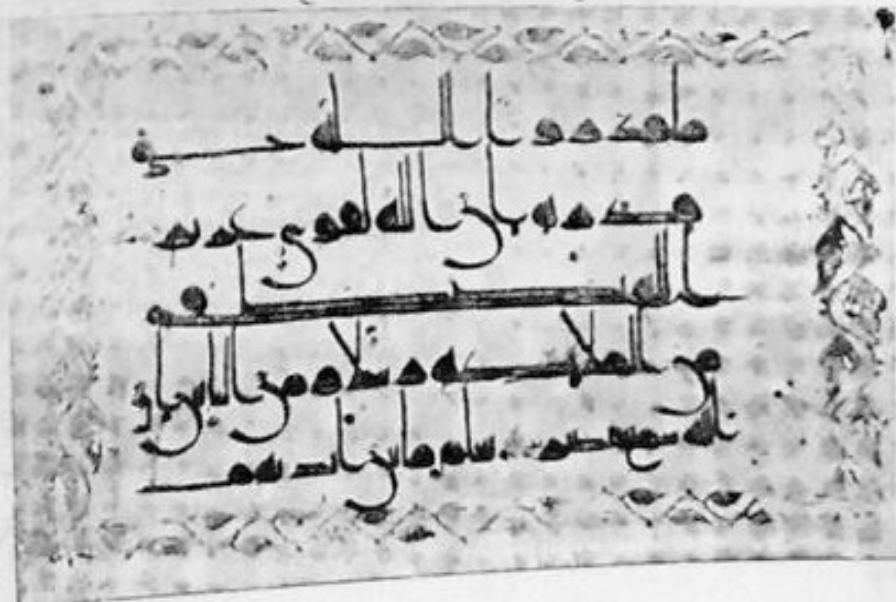 ما قدروا الله حق
قدره ان الله لقوي عزيز
الله يصطفي
من الملئكة رسلا ومن الناس ا
ن الله سميع بصير يعلم ما بين ايد يهم